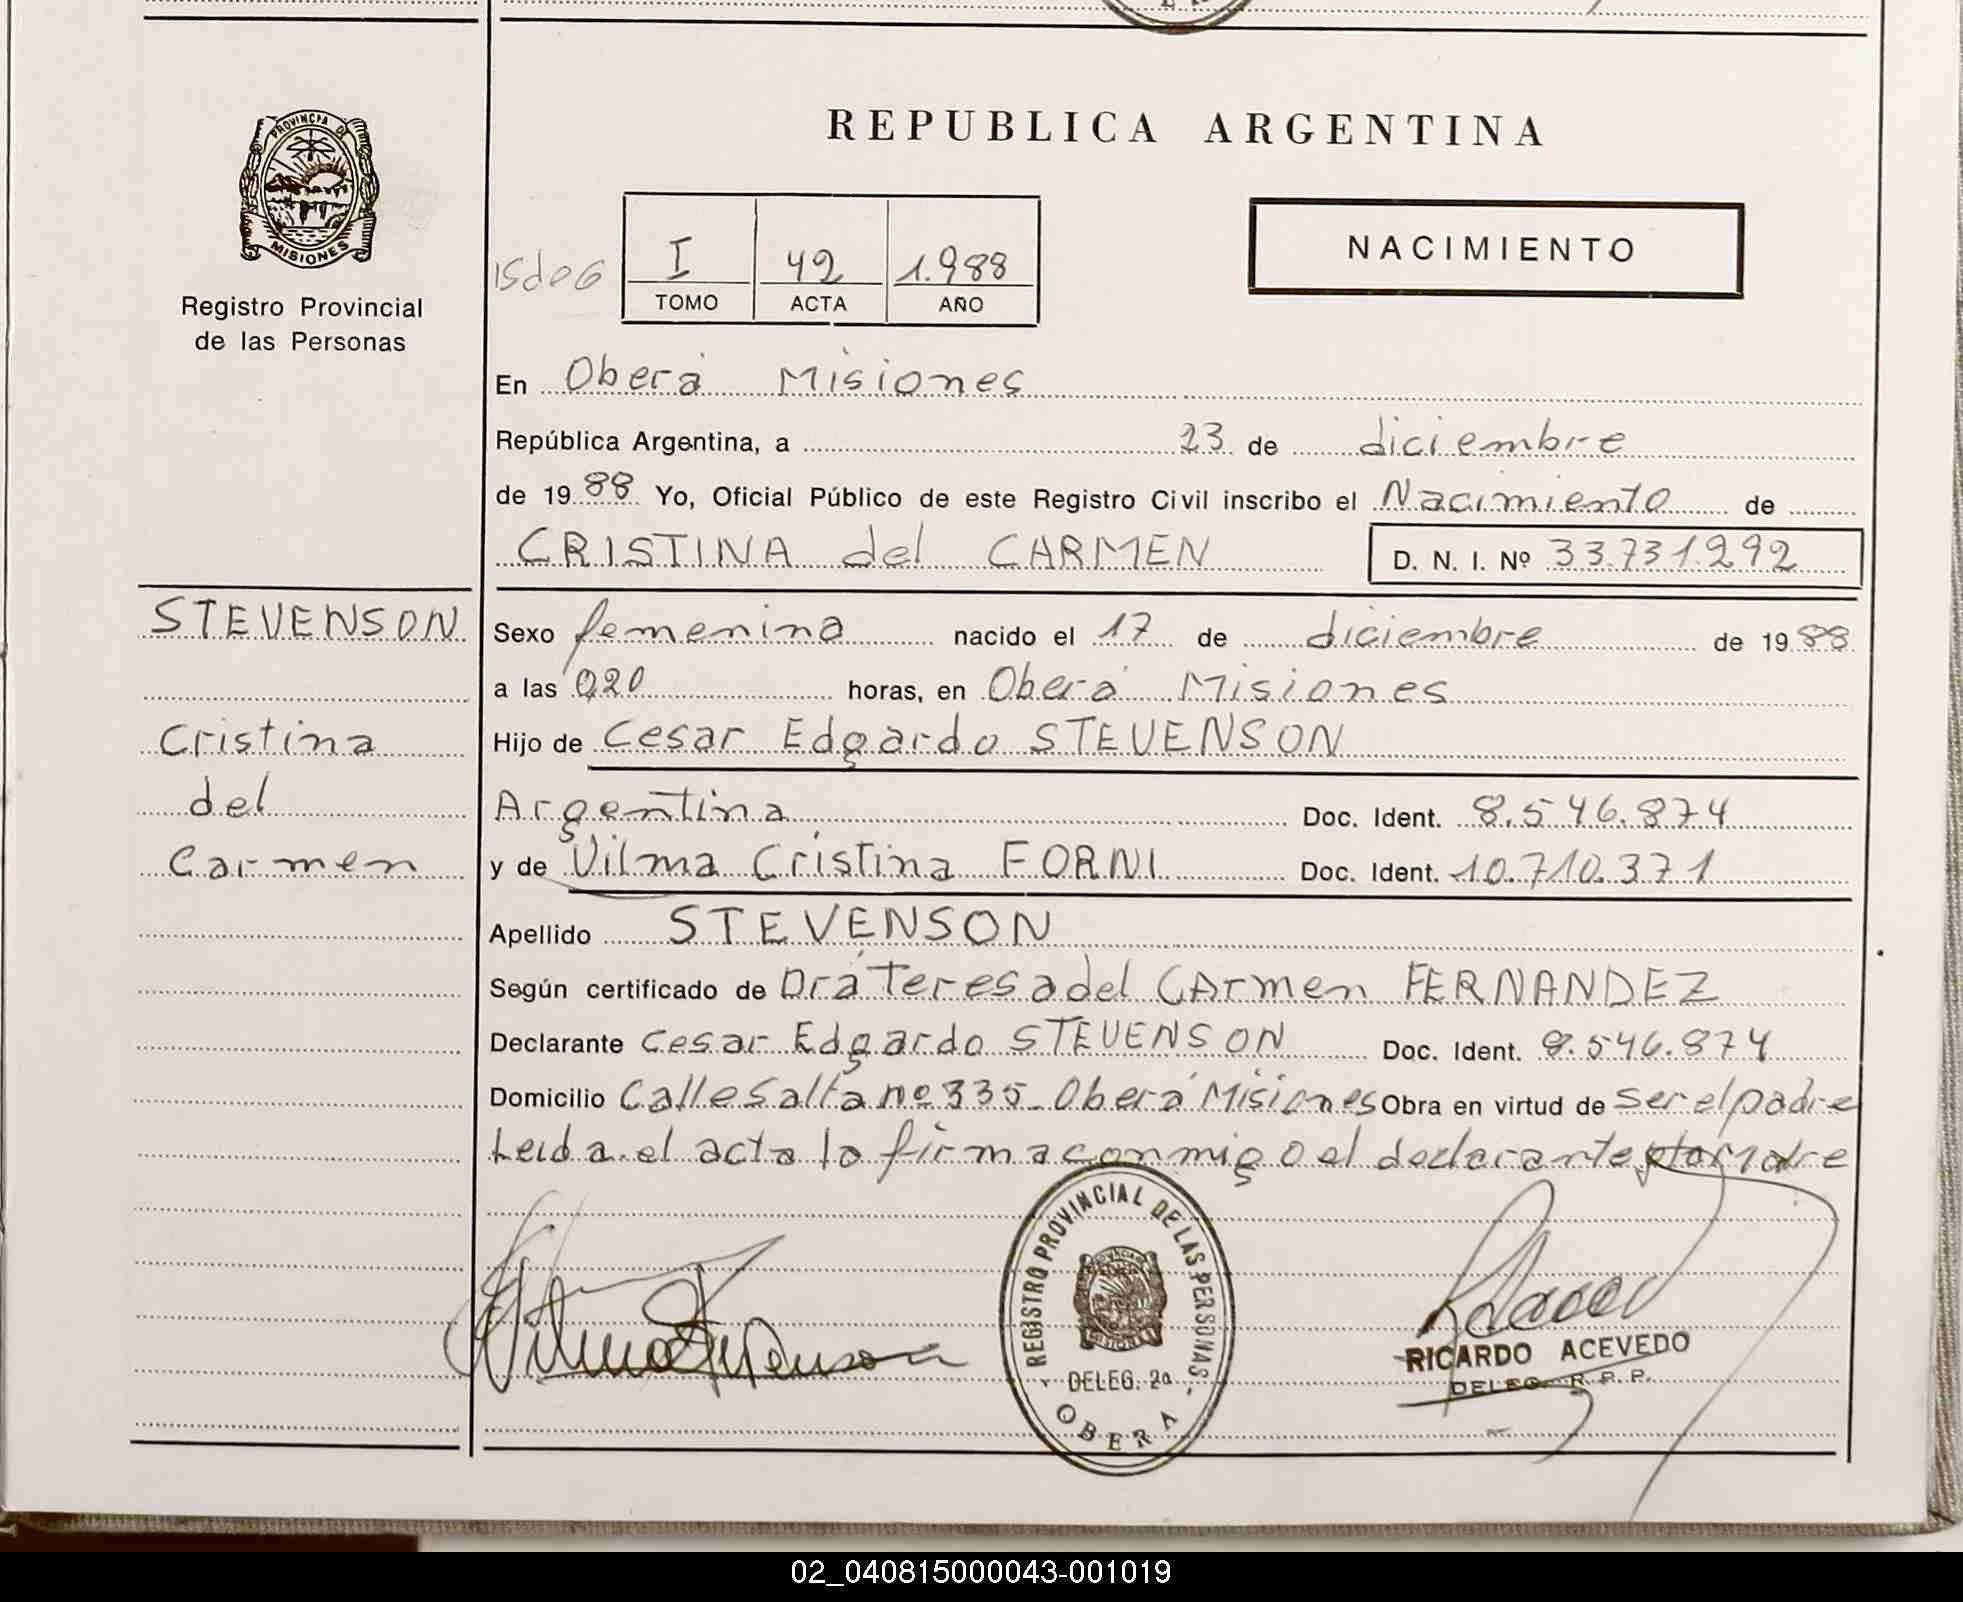 PROVINCIA DE
MISIONES
Registro Provincial
de las Personas
REPUBLICA ARGENTINA
NACIMIENTO
I 42 1.988
TOMO ACTA AÑO
En Oberá Misiones
República Argentina, a 23 de diciembre
de 1988 Yo, Oficial Público de este Registro Civil inscribo el Nacimiento de
CRISTINA del CARMEN D. N. I. Nº 33.731.292
STEVENSON
Cristina
del
Carmen
Sexo femenina nacido el 17 de diciembre de 1988
a las 0,20 horas, en Oberá Misiones
Hijo de Cesar Edgardo STEVENSON
Argentina Doc. Ident. 8.546.874
y de Vilma Cristina FORNI Doc. Ident. 10.710.371
Apellido STEVENSON
Según certificado de Dra Teresa del CArmen FERNANDEZ
Declarante Cesar Edgardo STEVENSON Doc. Ident. 8.546.874
Domicilio Calle Salta nº 335 - Oberá Misiones Obra en virtud de ser el padre
Leida el acta la firma conmigo el declarante
REGISTRO PROVINCIAL DE LAS PERSONAS
DELEG. 2a
OBERA
RICARDO ACEVEDO
DELEG. R. P. P.
02_040815000043-001019